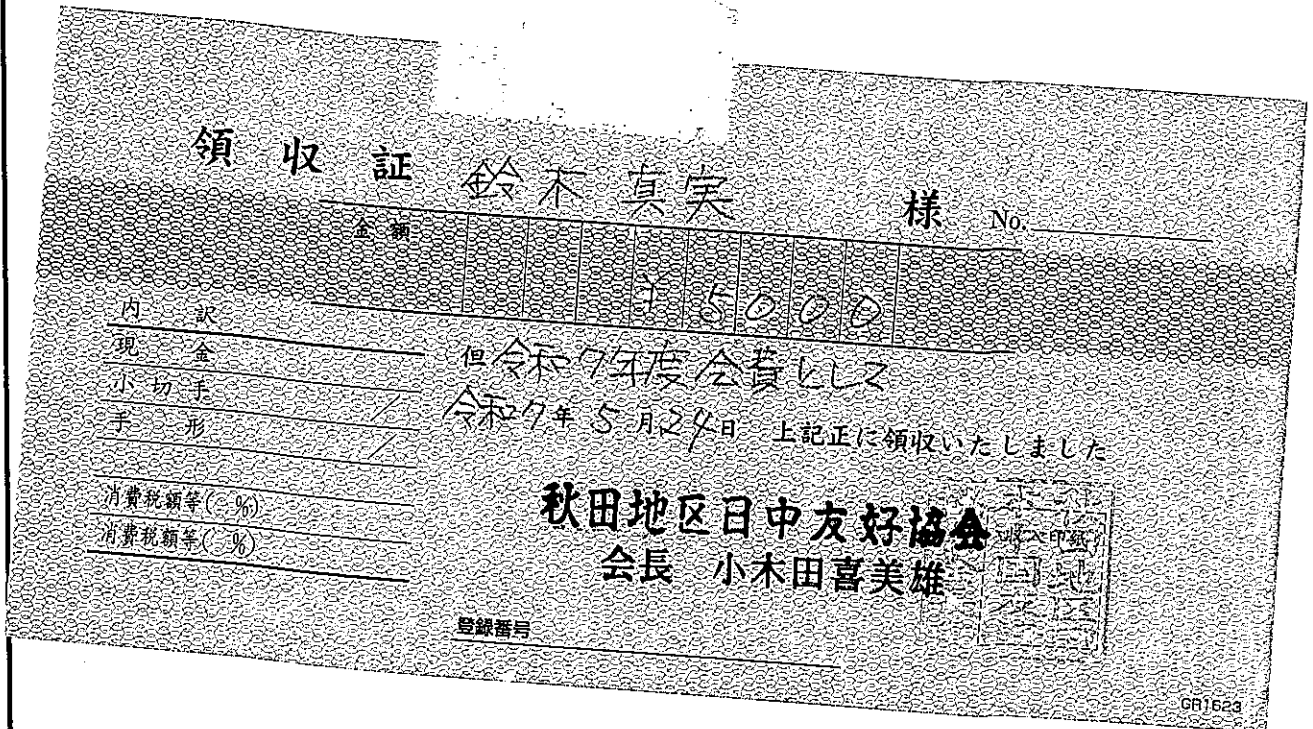 領収証 鈴木真実 様 No.
金額 ¥5000
内訳
現金
小切手 /
手形 /
消費税額等( %)
消費税額等( %)
但 令和7年度会費として
令和7年5月24日 上記正に領収いたしました
秋田地区日中友好協会
会長 小木田喜美雄
収入印紙
登録番号
GR1623